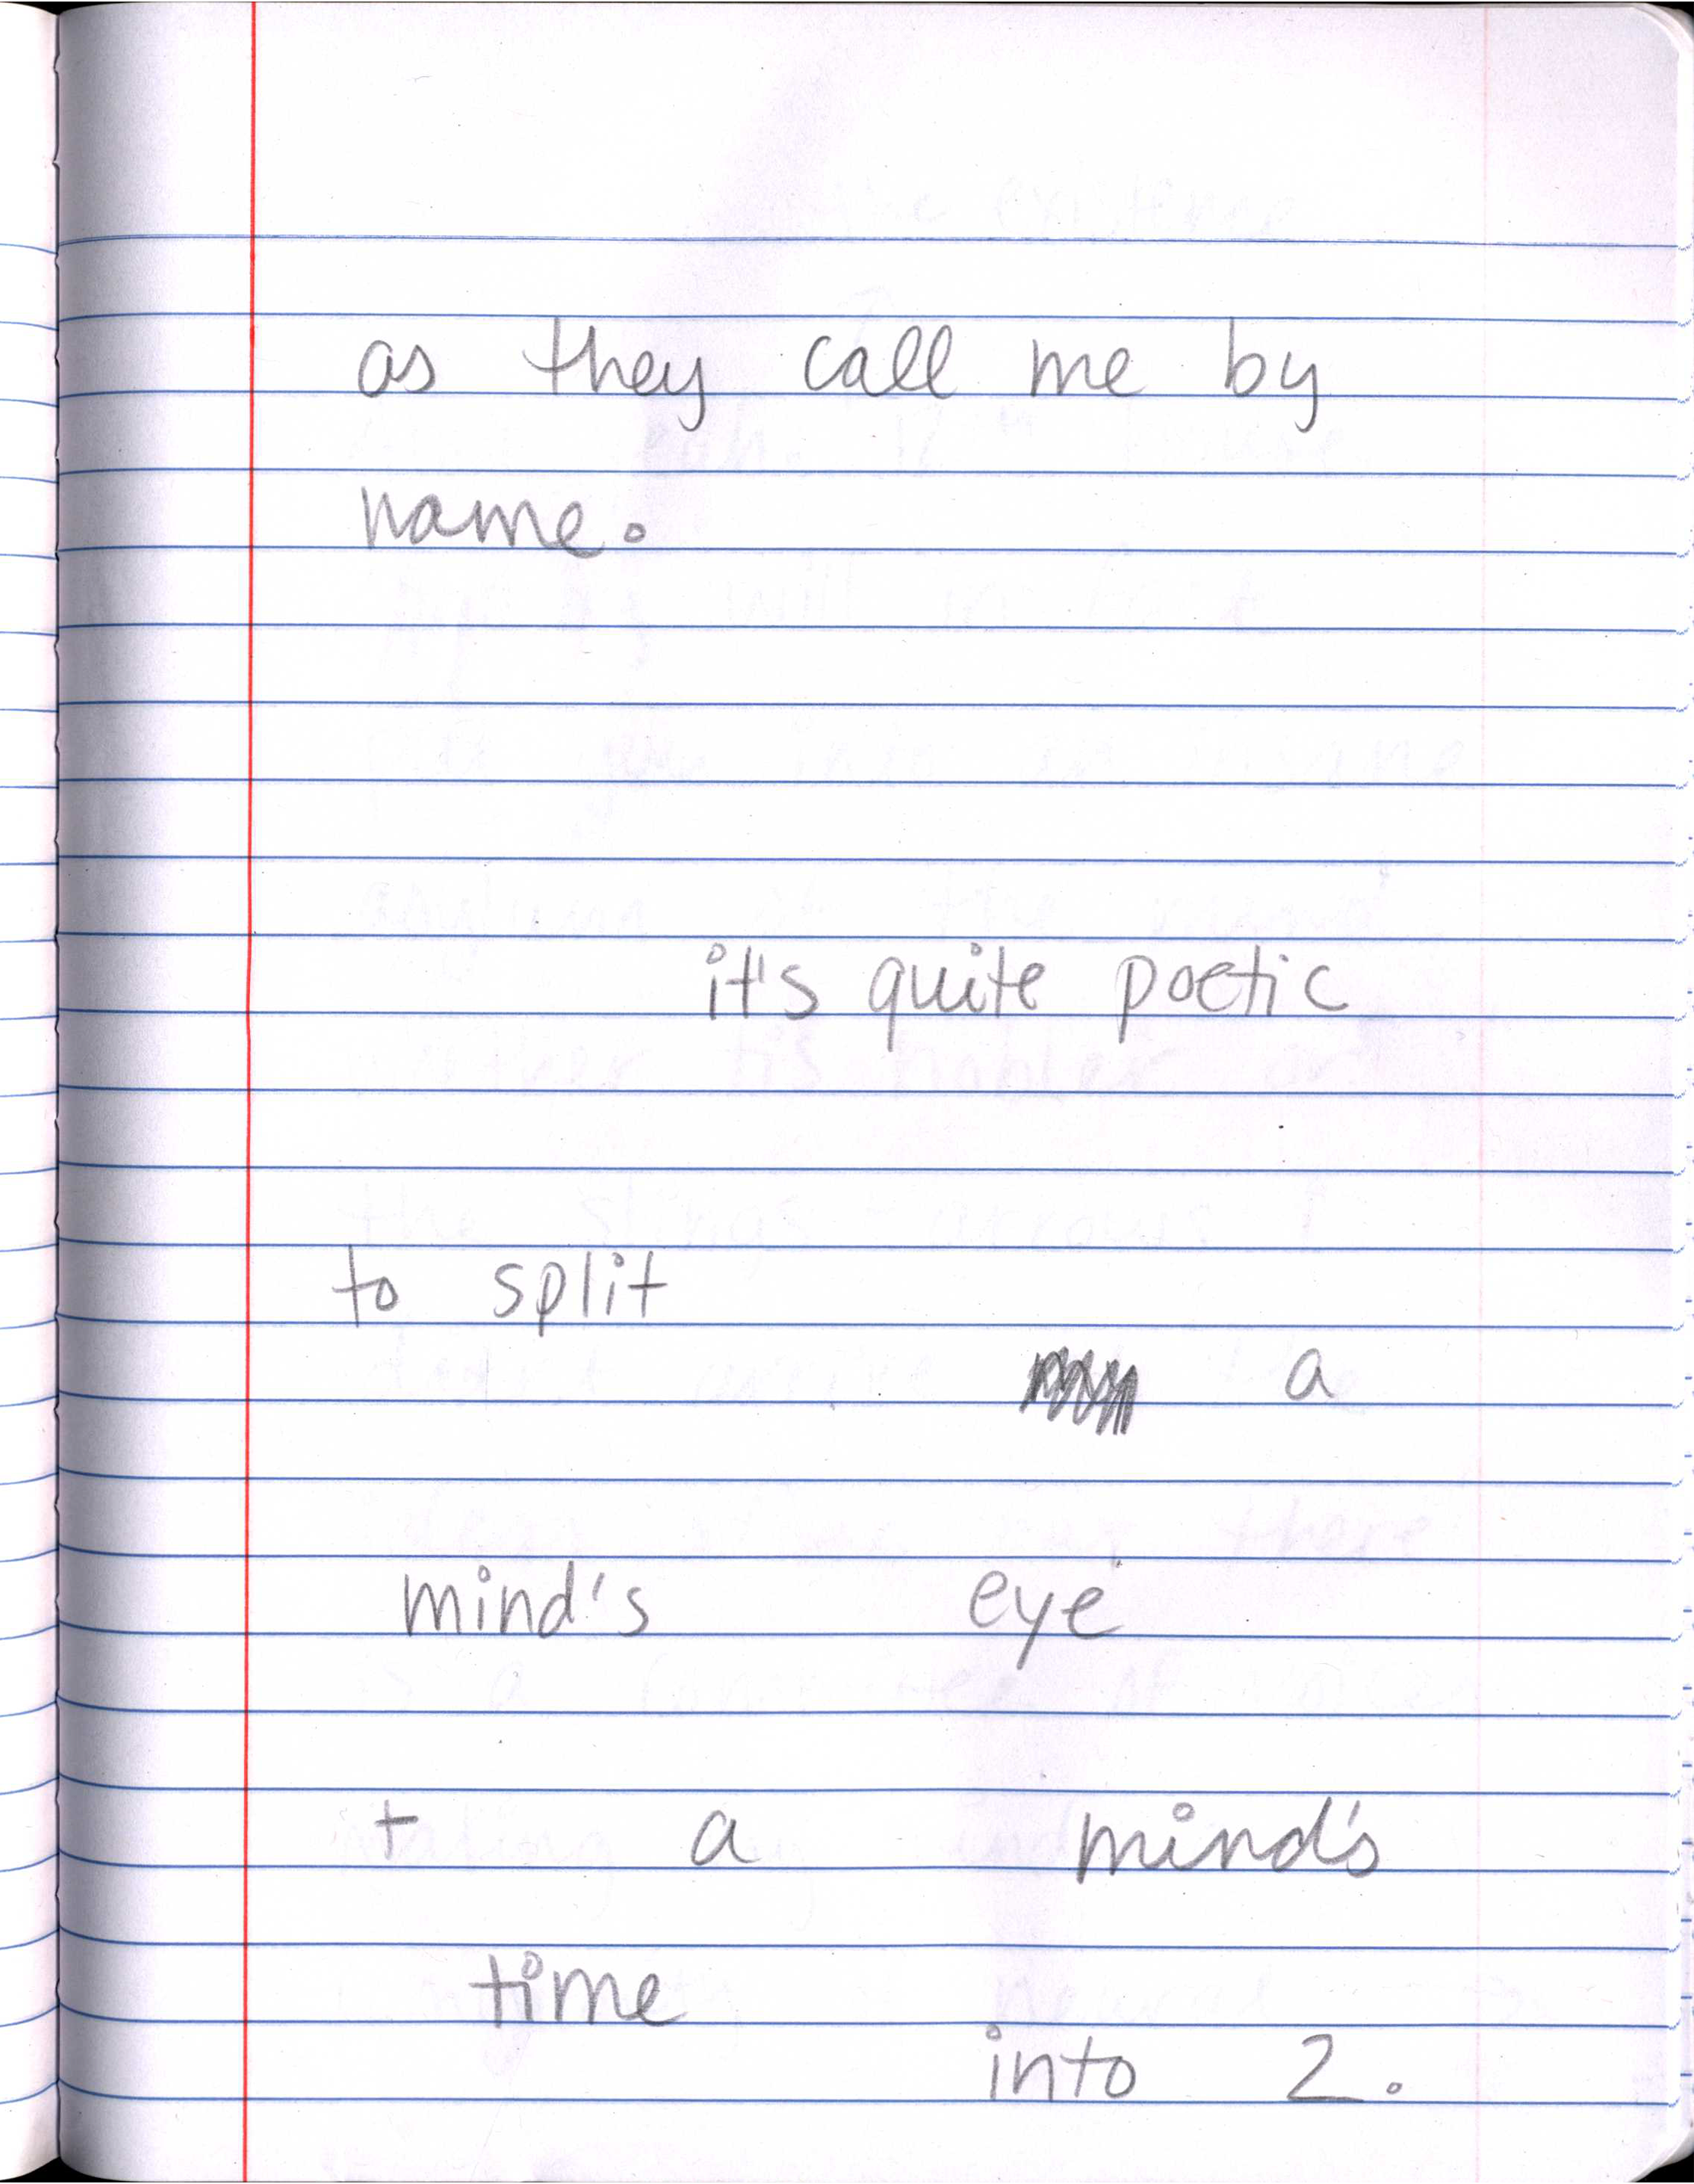 as they call me by
name.
it's quite poetic
to split
a
mind's eye
+ a mind's
time
into 2.